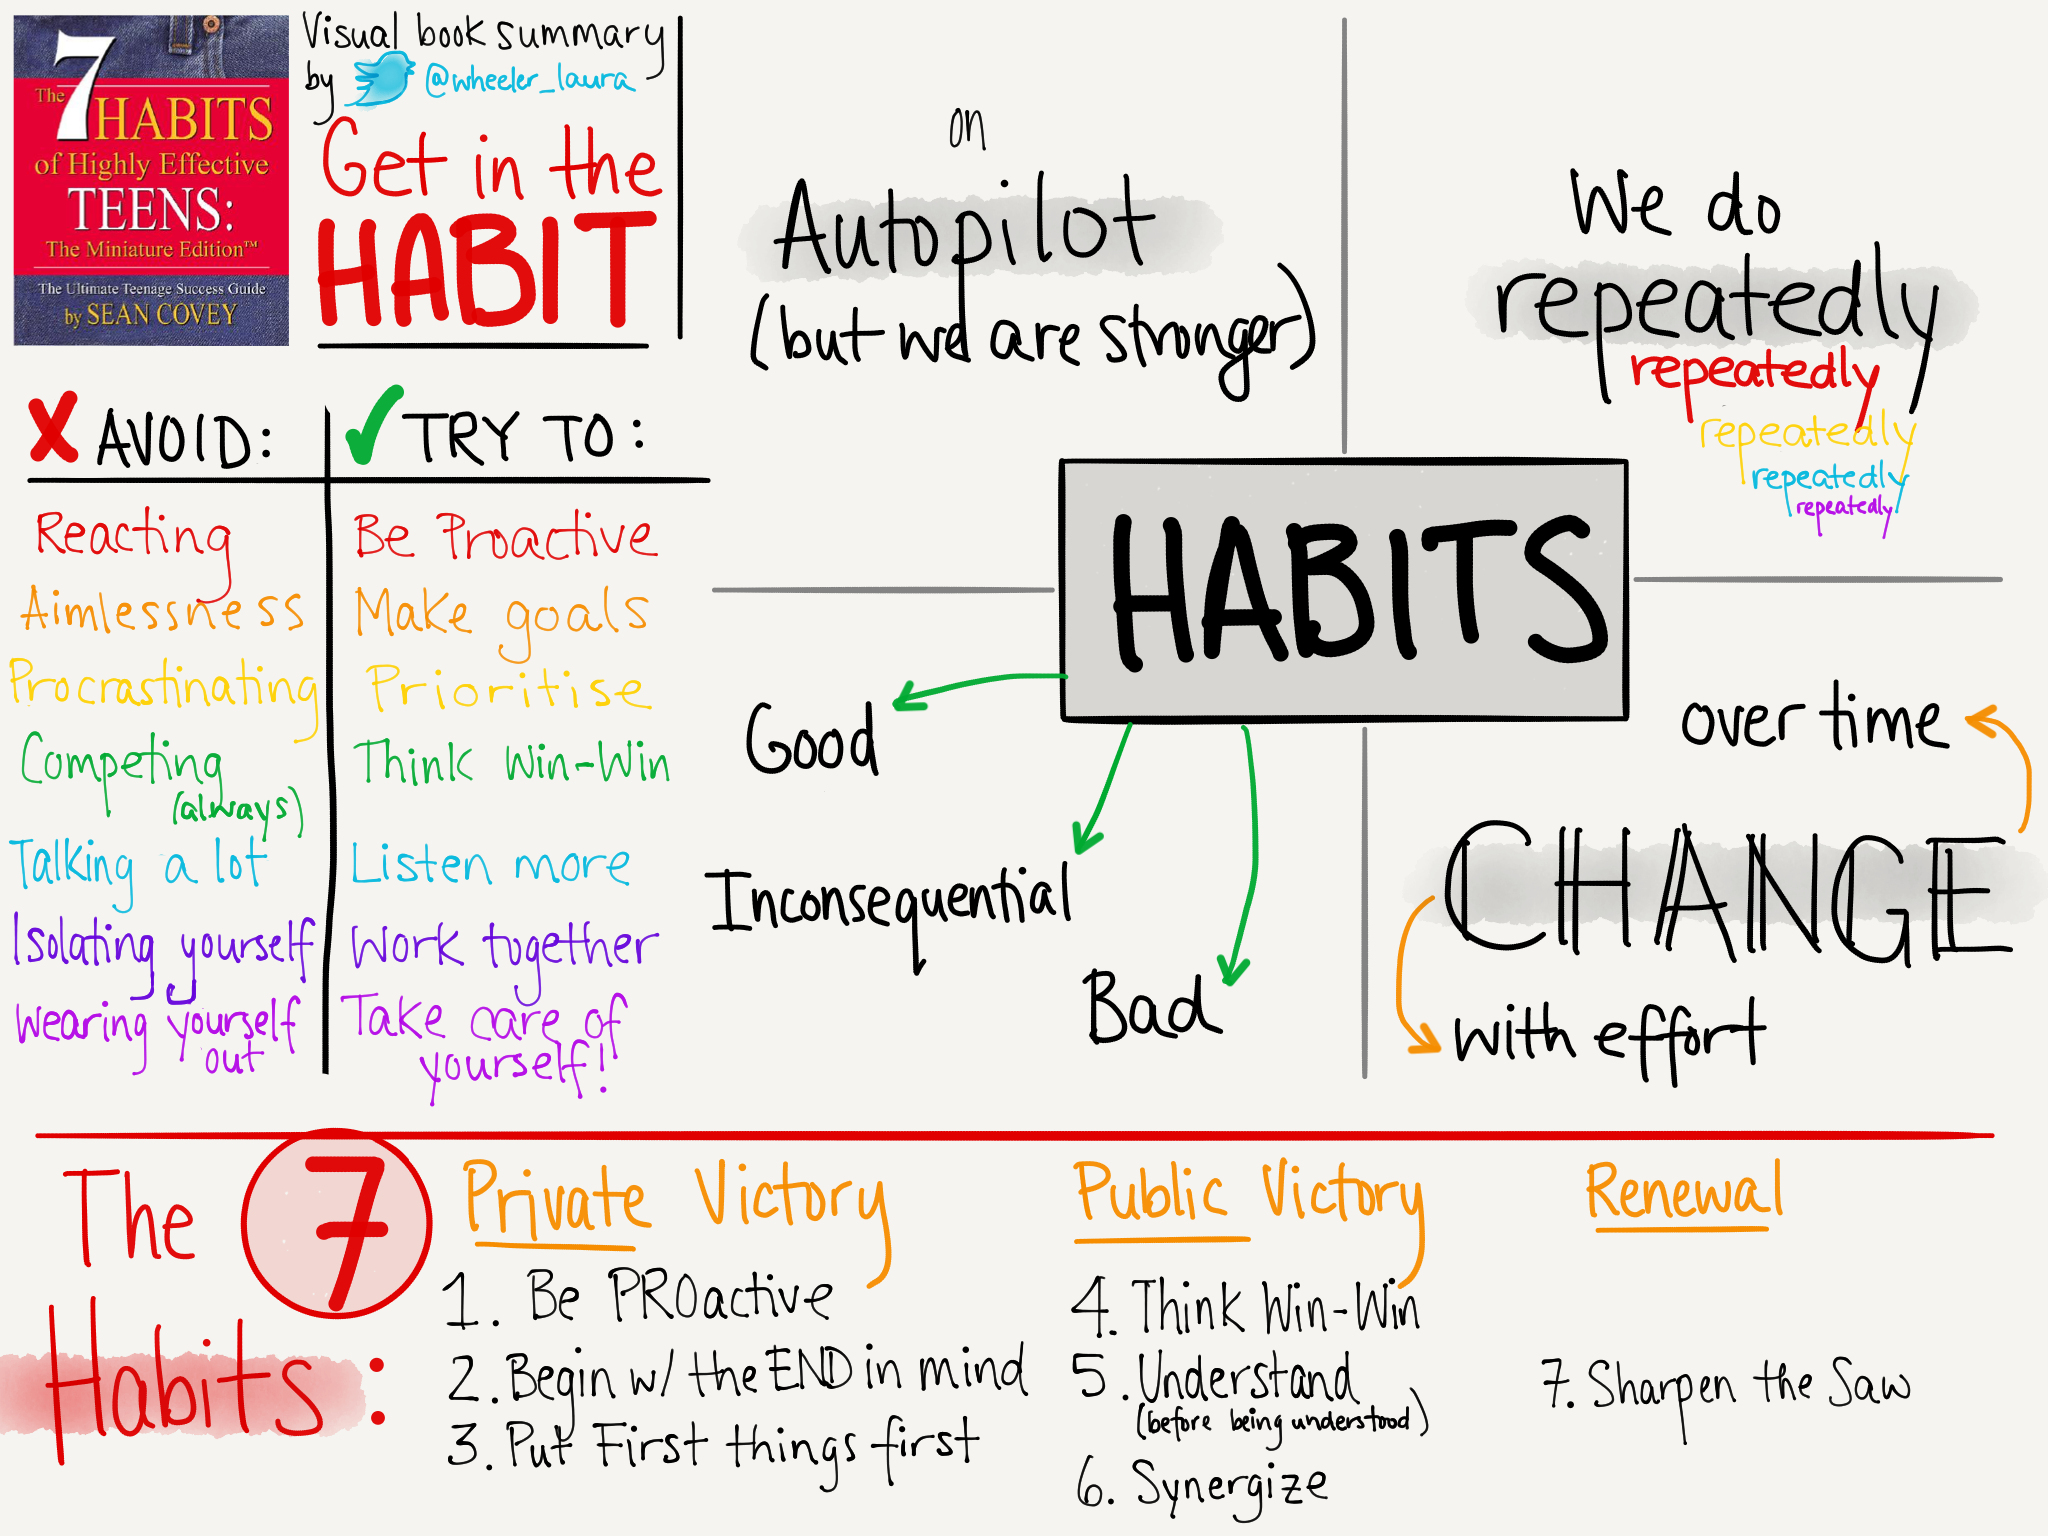 The 7 HABITS
of Highly Effective
TEENS:
The Miniature Edition™
The Ultimate Teenage Success Guide
by SEAN COVEY
Visual book summary
by @wheeler_laura
Get in the
HABIT
X AVOID:
✓ TRY TO:
Reacting
Be Proactive
Aimlessness
Make goals
Procrastinating
Prioritise
Competing
(always)
Think Win-Win
Talking a lot
Listen more
Isolating yourself
Work together
Wearing yourself
out
Take care of
yourself!
on
Autopilot
(but we are stronger)
We do
repeatedly
repeatedly
repeatedly
repeatedly
repeatedly
HABITS
Good
Inconsequential
Bad
over time
CHANGE
with effort
The 7
Habits:
Private Victory
1. Be PROactive
2. Begin w/ the END in mind
3. Put First things first
Public Victory
4. Think Win-Win
5. Understand
(before being understood)
6. Synergize
Renewal
7. Sharpen the Saw